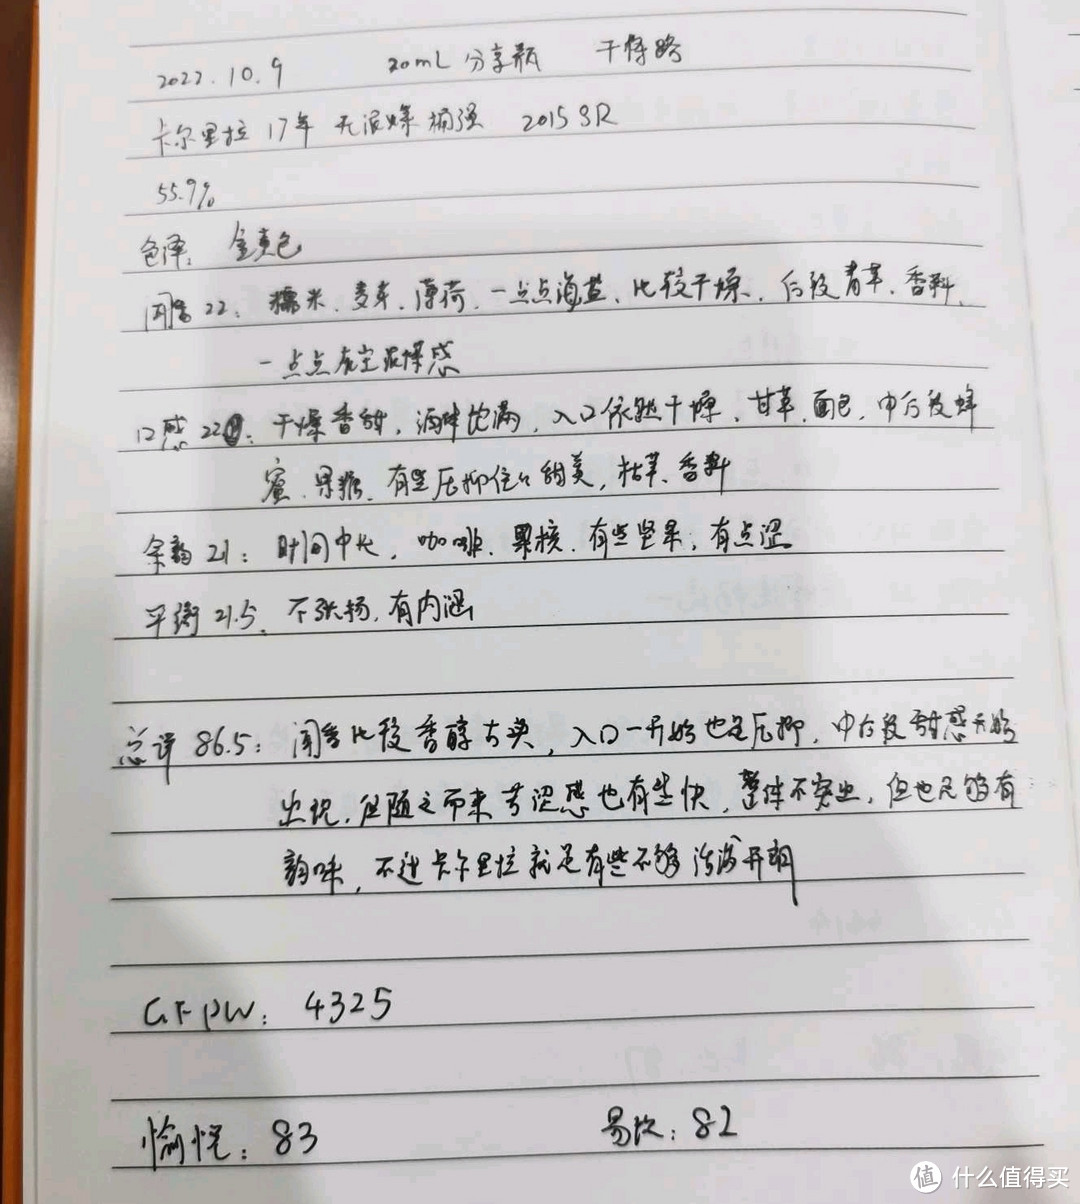 2022.10.9 20mL 分享瓶 干将路
卡尔里拉 17年 无泥煤 桶强 2015 SR
55.9%
色泽: 金黄色
闻香 22: 糯米、麦芽、薄荷、一点点海盐、比较干燥、后段青草、香料、
一点点泥煤感
口感 22: 干燥香甜, 酒体饱满, 入口依然干燥、甘草、面包、中后段蜂
蜜、果糖、有些压抑住的甜美, 枯草、香料
余韵 21: 时间中长, 咖啡、果核、有些坚果, 有点涩
平衡 21.5、不张扬, 有内涵
总评 86.5: 闻香比较香醇古典, 入口一开始也是压抑, 中后段甜感开始
出现, 但随之而来苦涩感也有些快, 整体不突出, 但也足够有
韵味, 不过卡尔里拉就是有些不够活泼开朗
GFPW: 4325
愉悦: 83 易饮: 82
值 什么值得买